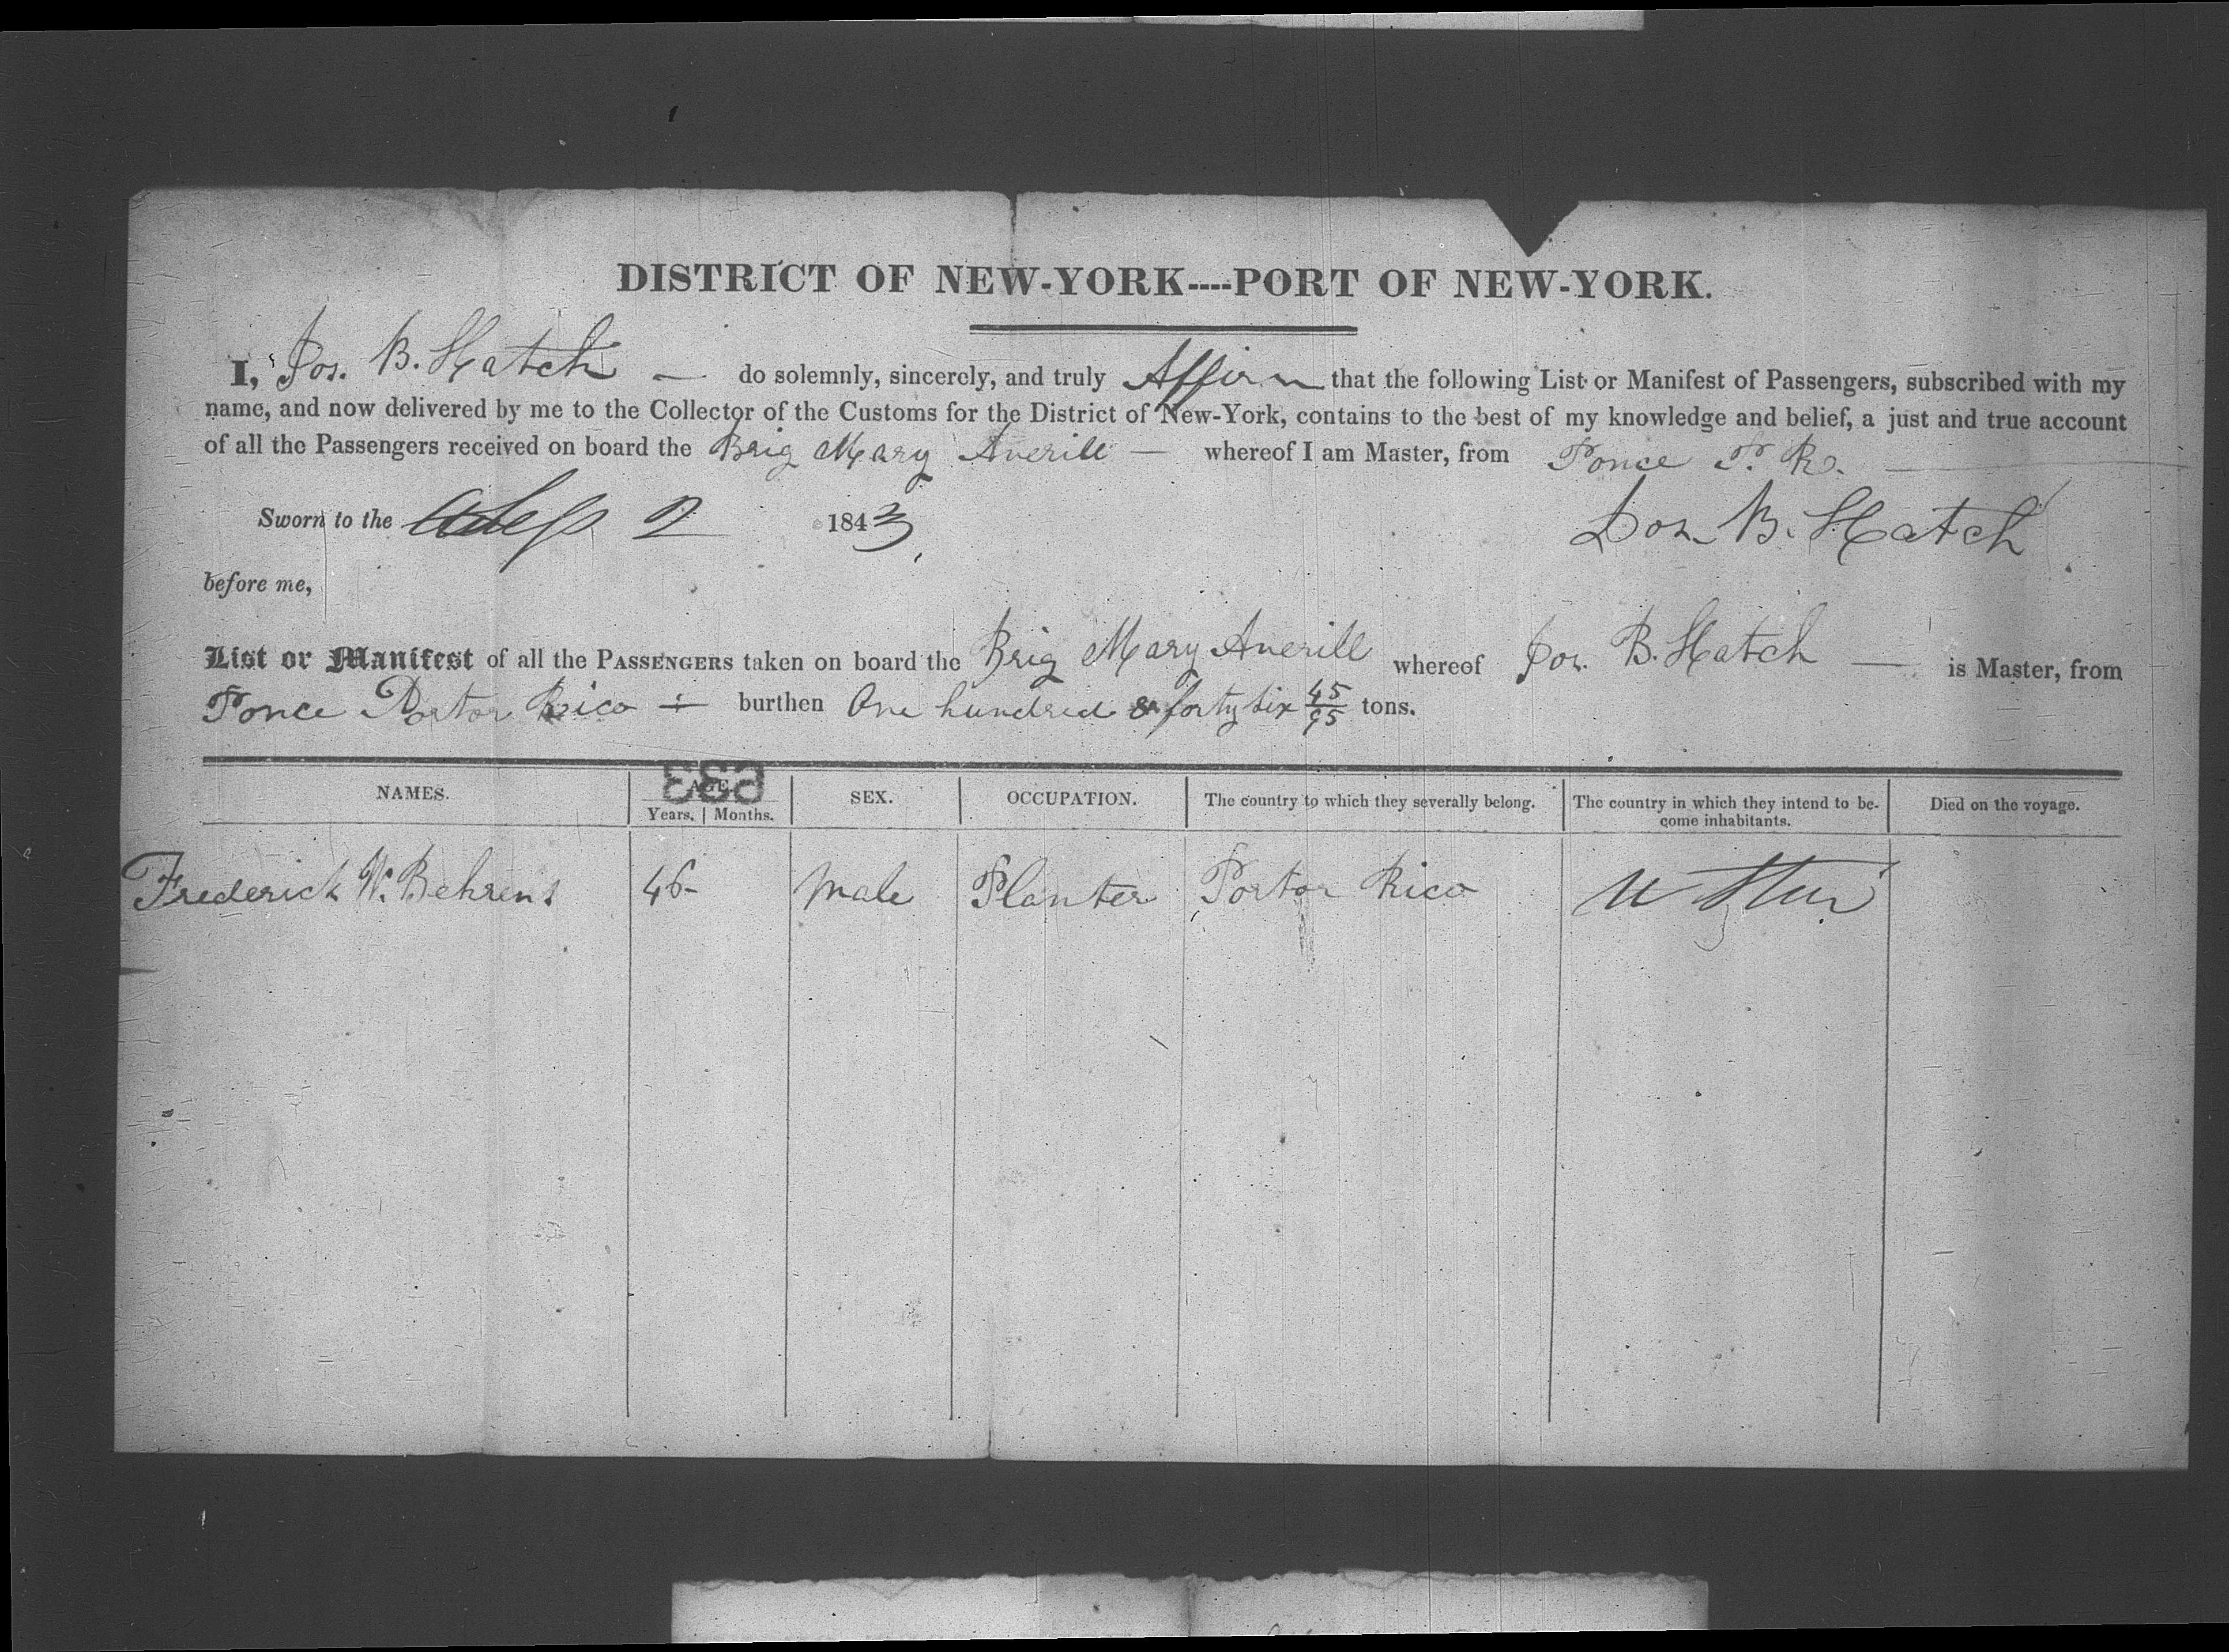 DISTRICT OF NEW-YORK----PORT OF NEW-YORK.
I, Jos. B. Hatch — do solemnly, sincerely, and truly Affirm that the following List or Manifest of Passengers, subscribed with my
name, and now delivered by me to the Collector of the Customs for the District of New-York, contains to the best of my knowledge and belief, a just and true account
of all the Passengers received on board the Brig Mary Averill — whereof I am Master, from Ponce P. R. —
Sworn to the 2 1843
Jos. B. Hatch
before me,
List or Manifest of all the PASSENGERS taken on board the Brig Mary Averill whereof Jos. B. Hatch — is Master, from
Ponce Portor Rico burthen One hundred & forty six 45/95 tons.
NAMES. AGE. SEX. OCCUPATION. The country to which they severally belong. The country in which they intend to be- Died on the voyage.
Years. Months. come inhabitants.
633
Frederick W. Behrens 46 Male Planter Portor Rico